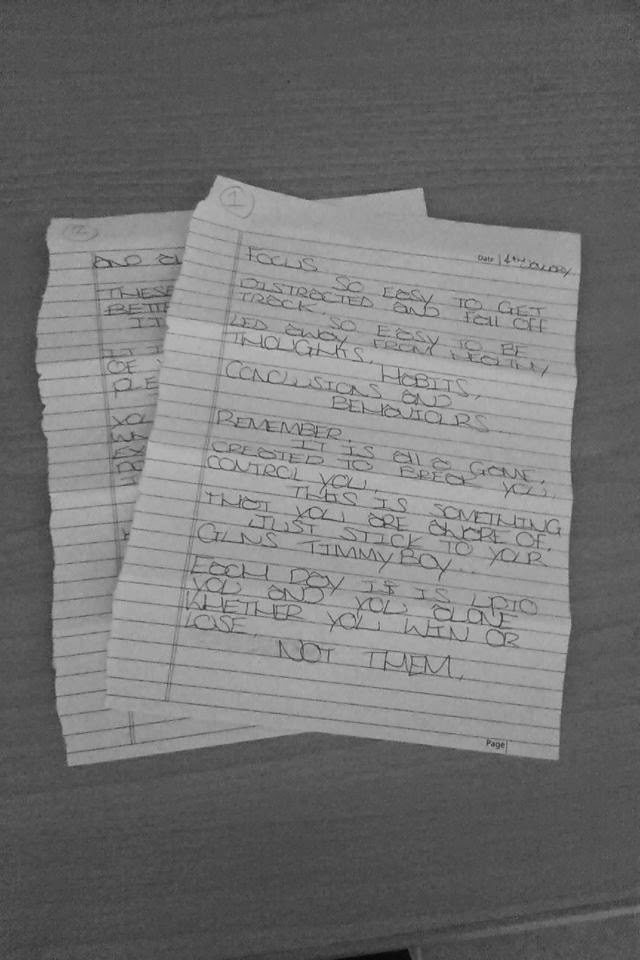 1
Date 4th January
FOCUS. SO EASY TO GET
DISTRACTED AND FALL OFF
TRACK. SO EASY TO BE
LED AWAY FROM HEALTHY
THOUGHTS, HABITS,
CONCLUSIONS AND
BEHAVIOURS.
REMEMBER,
IT IS ALL A GAME,
CREATED TO BREAK YOU,
CONTROL YOU.
THIS IS SOMETHING
THAT YOU ARE AWARE OF.
JUST STICK TO YOUR
GUNS TIMMY BOY...
EACH DAY IT IS UPTO
YOU AND YOU ALONE
WHETHER YOU WIN OR
LOSE.
NOT THEM.
Page
2
AND
THESE
BETT
IT
IT I
OF
PLE
YOU